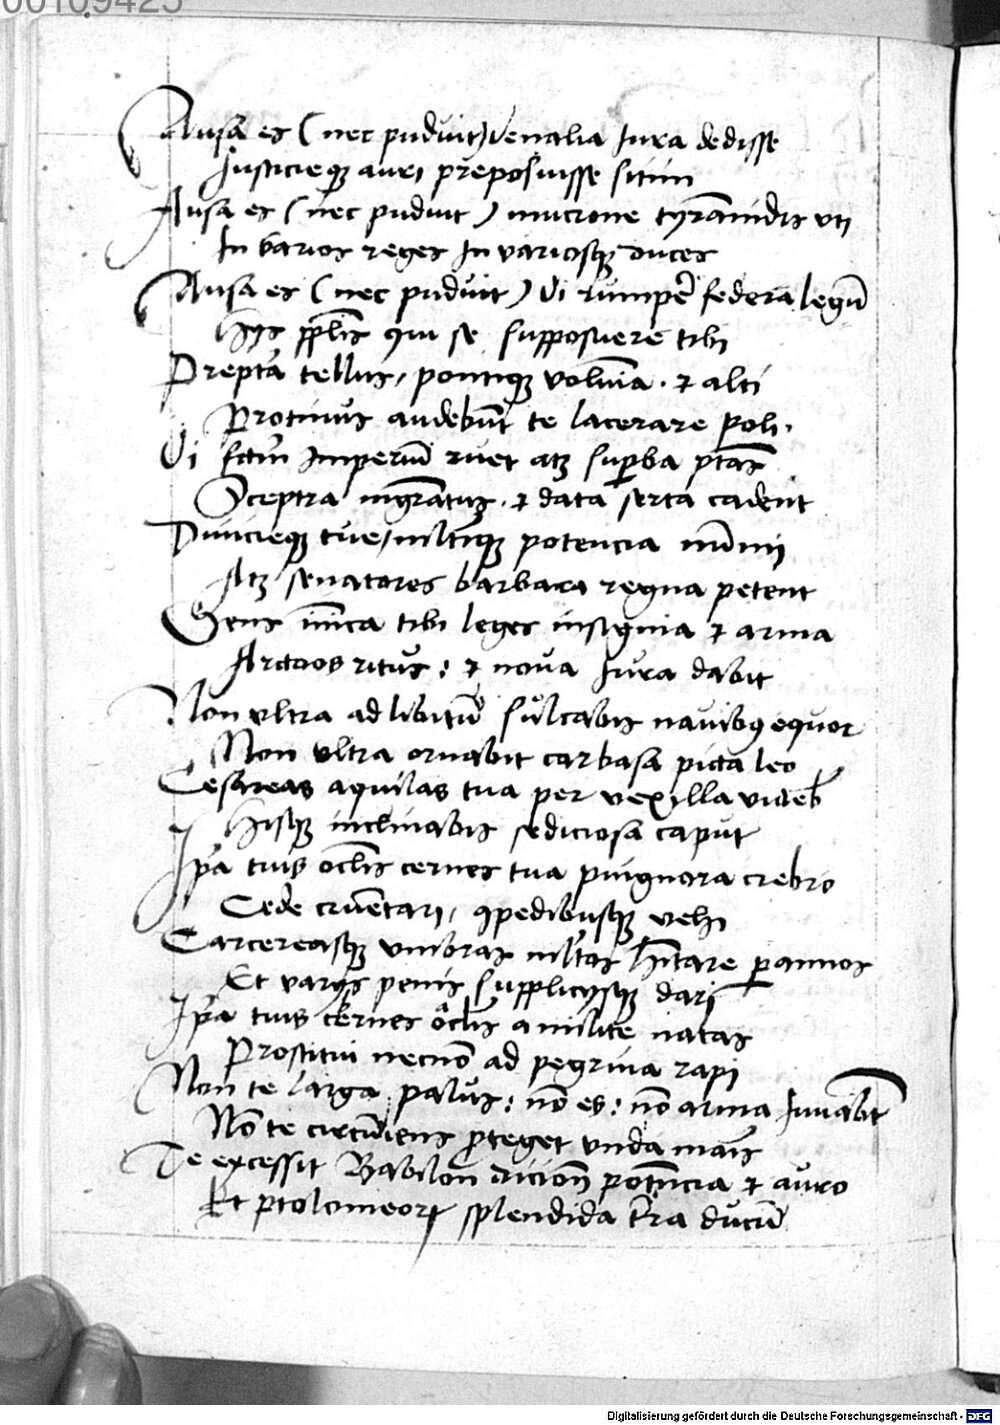 00109425
Ausa es (nec puduit) venalia Iura dedisse
Justicieq̃ auri preposuisse sitim
Ausa es (nec puduit) mucrone tyrãnidis vti
In varios reges In variosq̃ duces
Ausa es (nec puduit) vi rumpe᷑ federa legũ
Hijs pp̃lis qui se supposuere tibi
Prepta tellus, pontiq̃ volũia. et alti
Protinus audebũt te lacerare poli.
Vi Imperiũ ruet atq̃ superba ptãs
Sceptra ingratus. et data serta cadent
Diuicieq̃ tue, multiq̃ potencia nũmi
Atq̃ senatores barbara regna petent
Gens inĩca tibi leges insignia et arma
Arctoos ritus: et noua Iura dabit
Non vltra ad libitũ sulcabis nauibꝰ equor
Non vltra ornabit carbasa picta leo
Cesareas aquilas tua per vexilla videb̃
Hisq̃ inclinabis sediciosa caput
Ip̃a tuis oclĩs cernes tua pingnora crebro
Cede cruẽtari, ꝯpedibusq̃ vehi
Carcereasq̃ vmbras mĩtos hĩtare per annos
Et varijs penis supplicijsq̃ dari
Ip̃a tuis cernes oclĩs a milite natas
Prostitui necnõ ad pegrina rapi
Non te larga palus: nõ es: nõ arma Iuuabũt
Nõ te circũiens proteget vnda maris
Te excessit Babilon dicioñ potẽncia et auro
Et ptolomeorꝝ splendida tr̃a ducũ
Digitalisierung gefördert durch die Deutsche Forschungsgemeinschaft - DFG